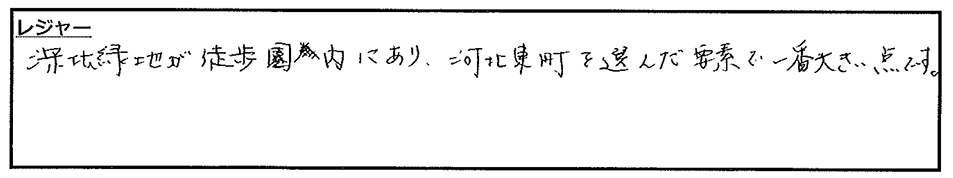 レジャー
深北緑地が徒歩圏内にあり、河北東町を選んだ要素で一番大きい点です。